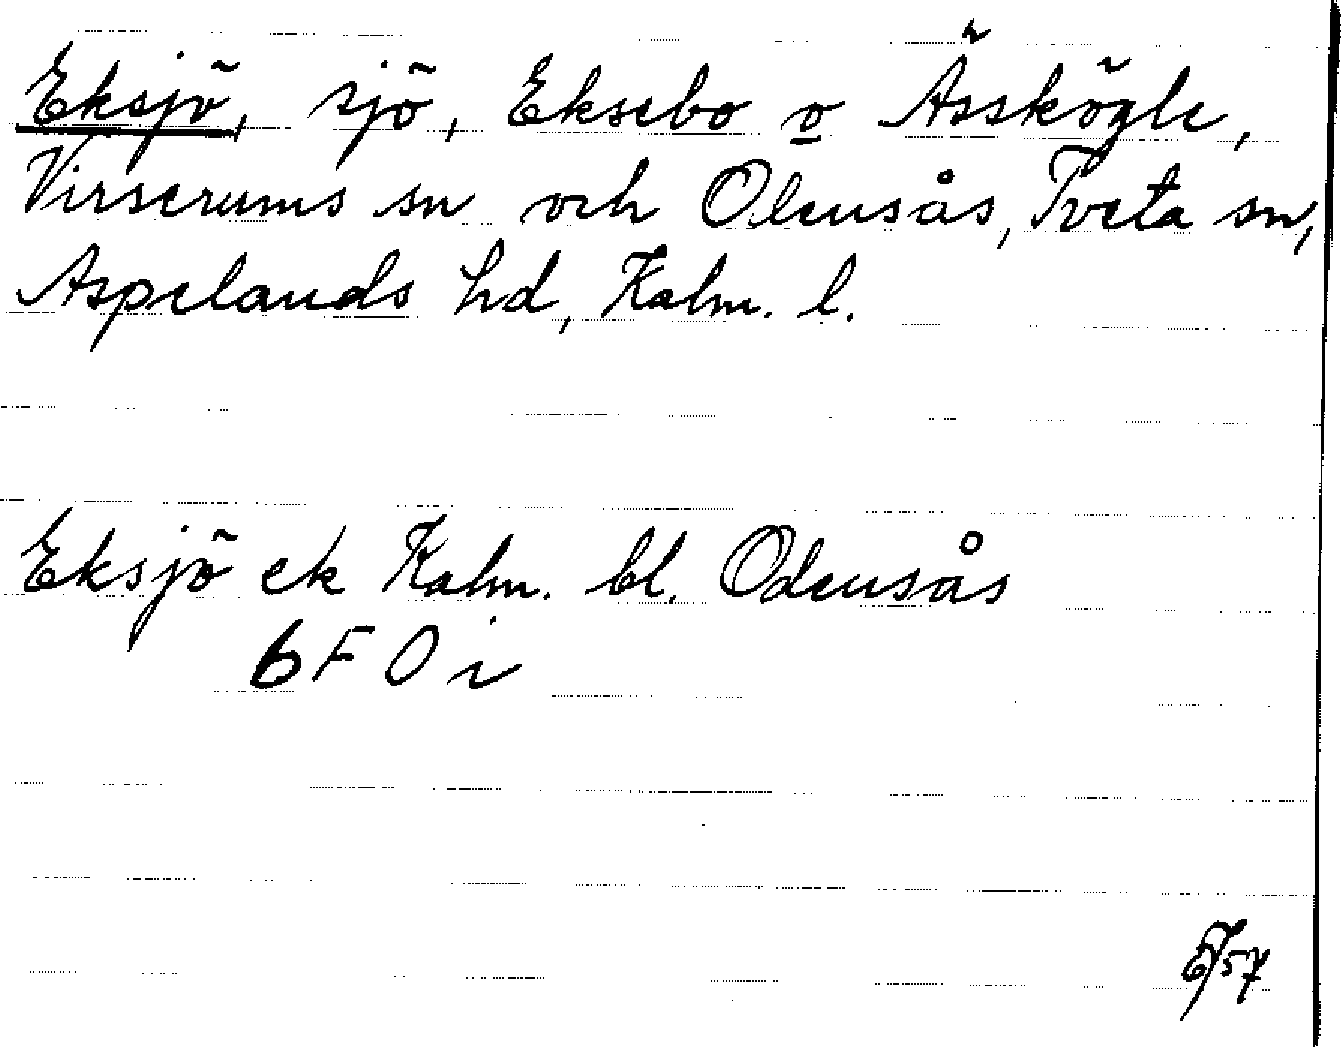 Eksjö, sjö, Eksebo o Ässkögle,
Virserums sn och Olensås, Tveta sn,
Aspelands hd, Kalm. l.
Eksjö ek Kalm. bl. Odensås
6 F O i
57